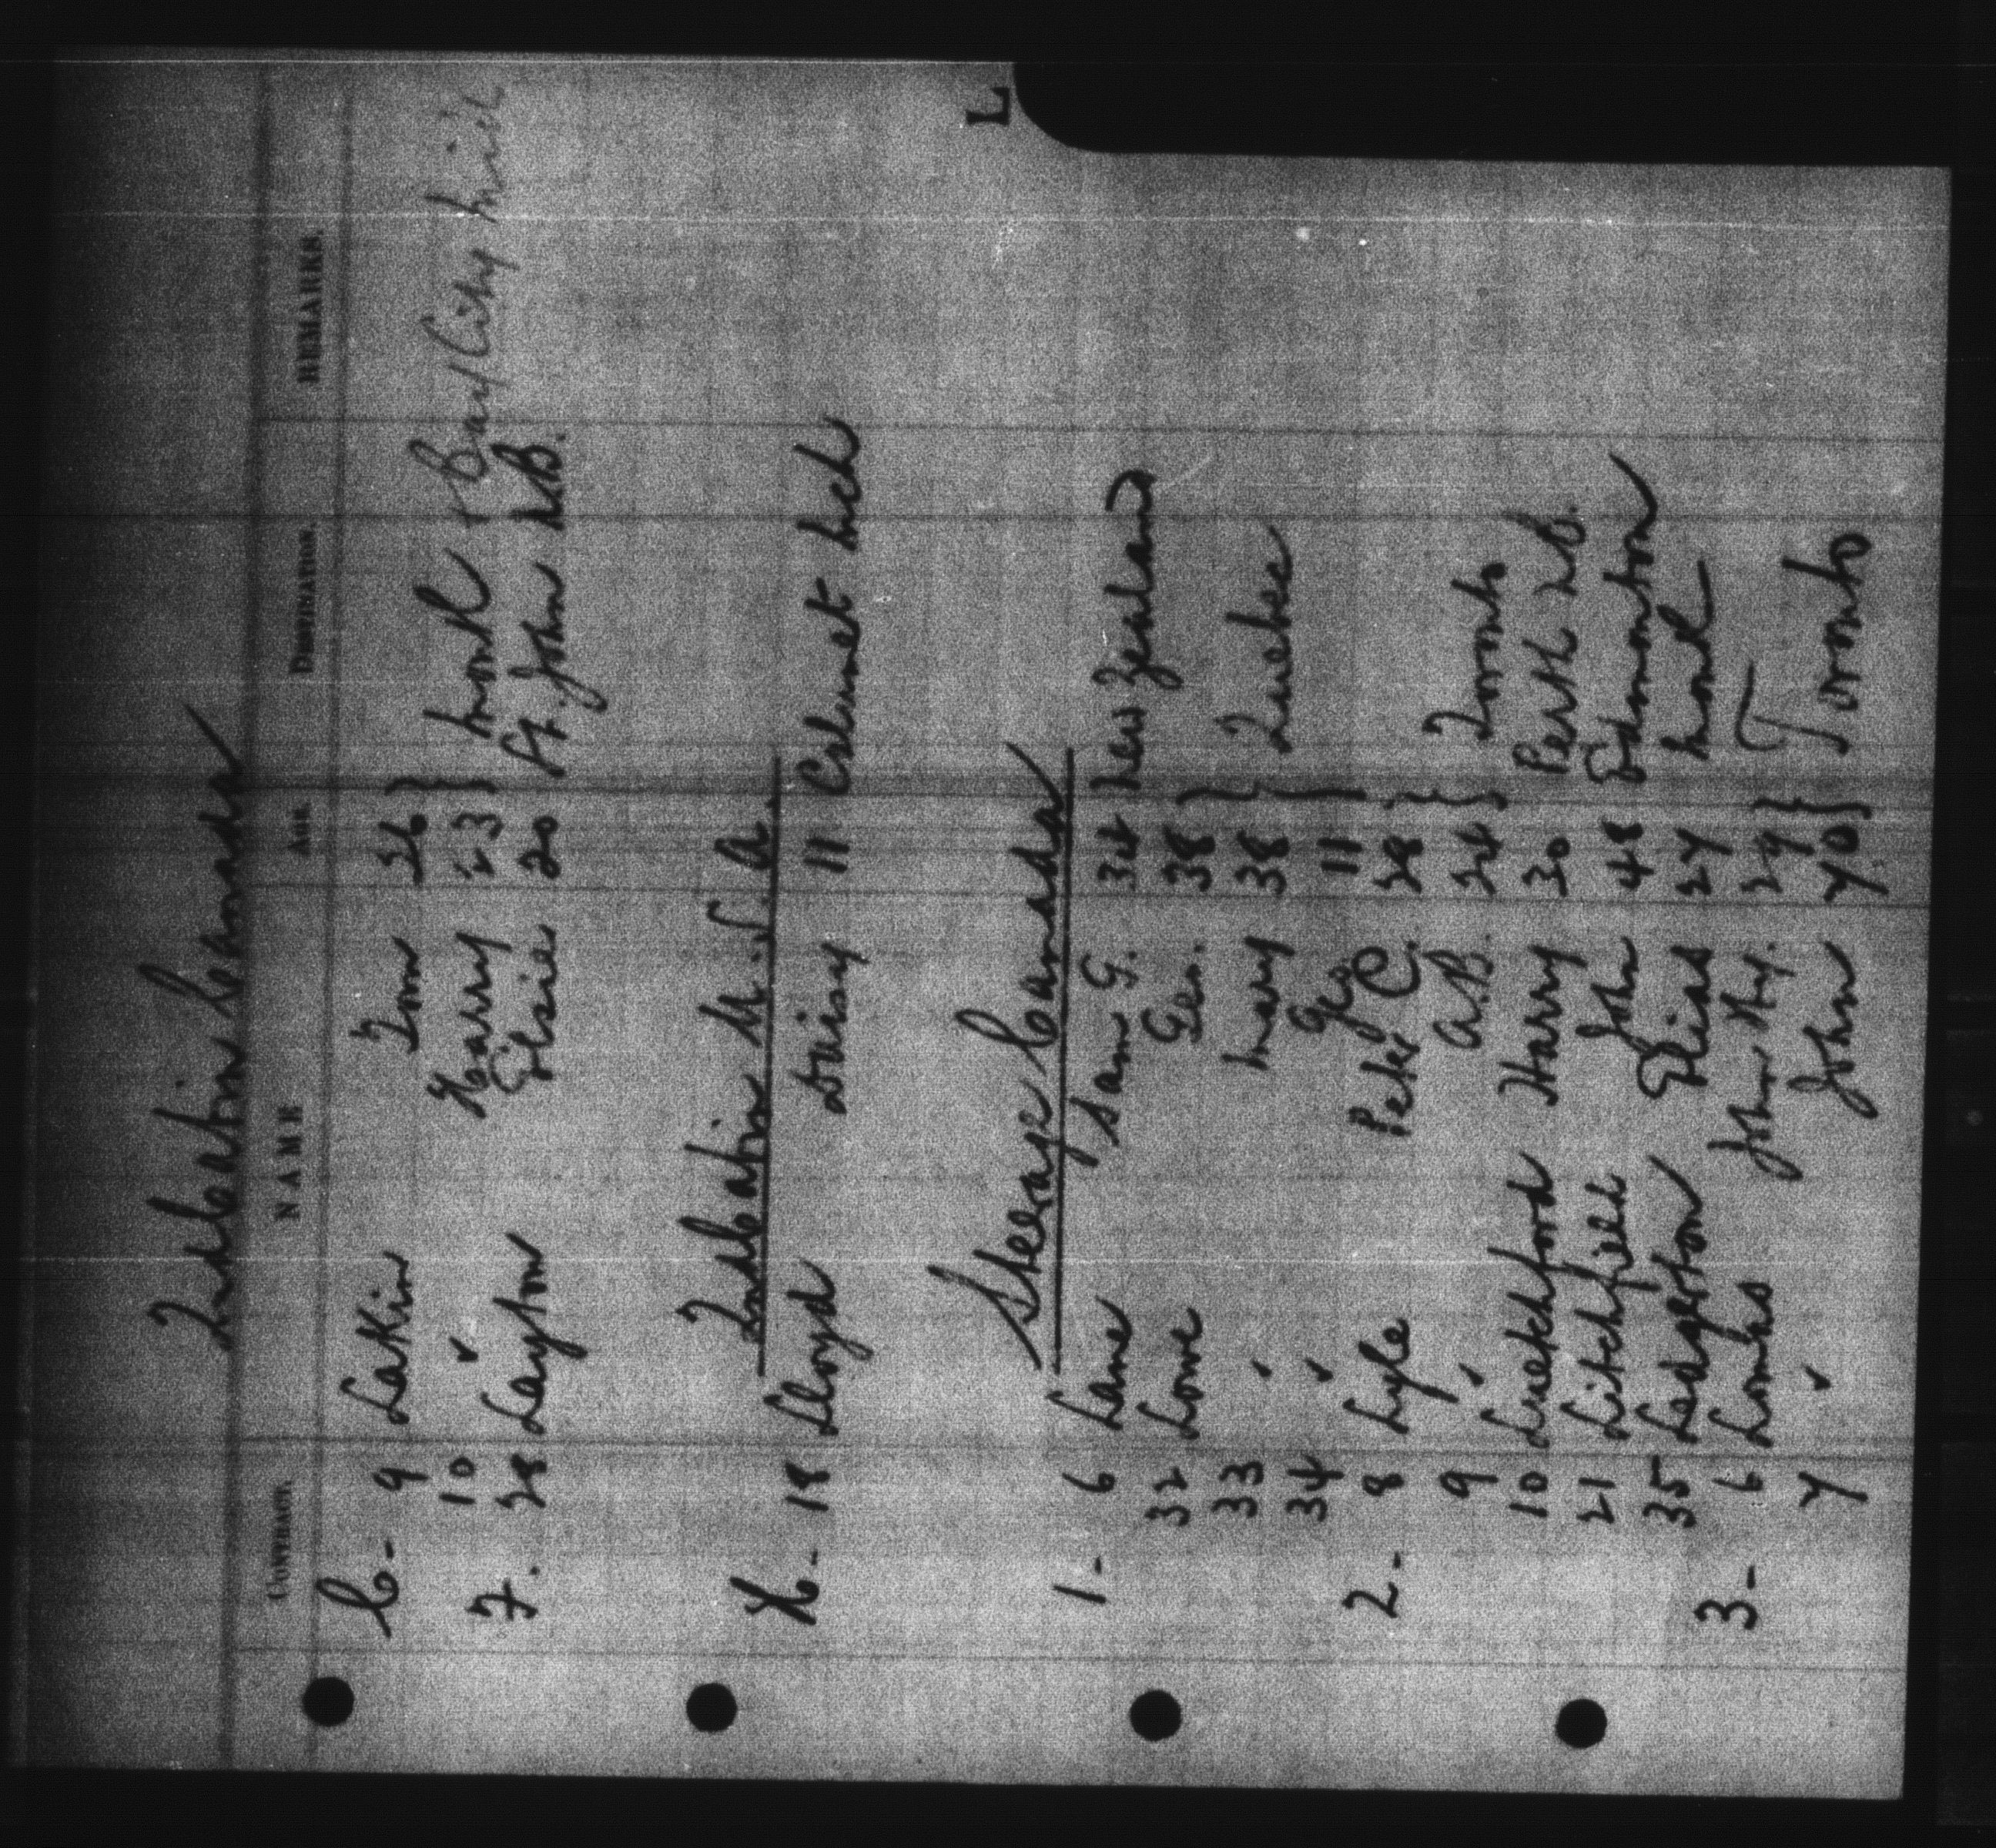 2nd Cabin Canada
CONTRACT. NAME AGE DESTINATION. REMARKS.
C - 9 Lakin Tom 26 }
10 ✓ Harry 23 } Montl + Bay City Mich
F. 28 Layton Elsie 20 St. John N.B.
2nd Cabin U.S.A.
H - 18 Lloyd Daisy 11 Calumet Mich
L
Steerage Canada
1 - 6 Lane Sam G. 34 New Zealand
32 Lowe Geo. 38 }
33 ✓ Mary 38 } Quebec
34 ✓ Geo 11 }
2 - 8 Lyle Peter C. 28 }
9 ✓ A.B. 24 } Toronto
10 Luetchford Harry 30 Perth N.B.
21 Litchfield John 48 Edmonton
35 Ledgerton Elias 27 Montl
3 - 6 Lombs John Hy. 29 } T
7 ✓ John 70 } Toronto